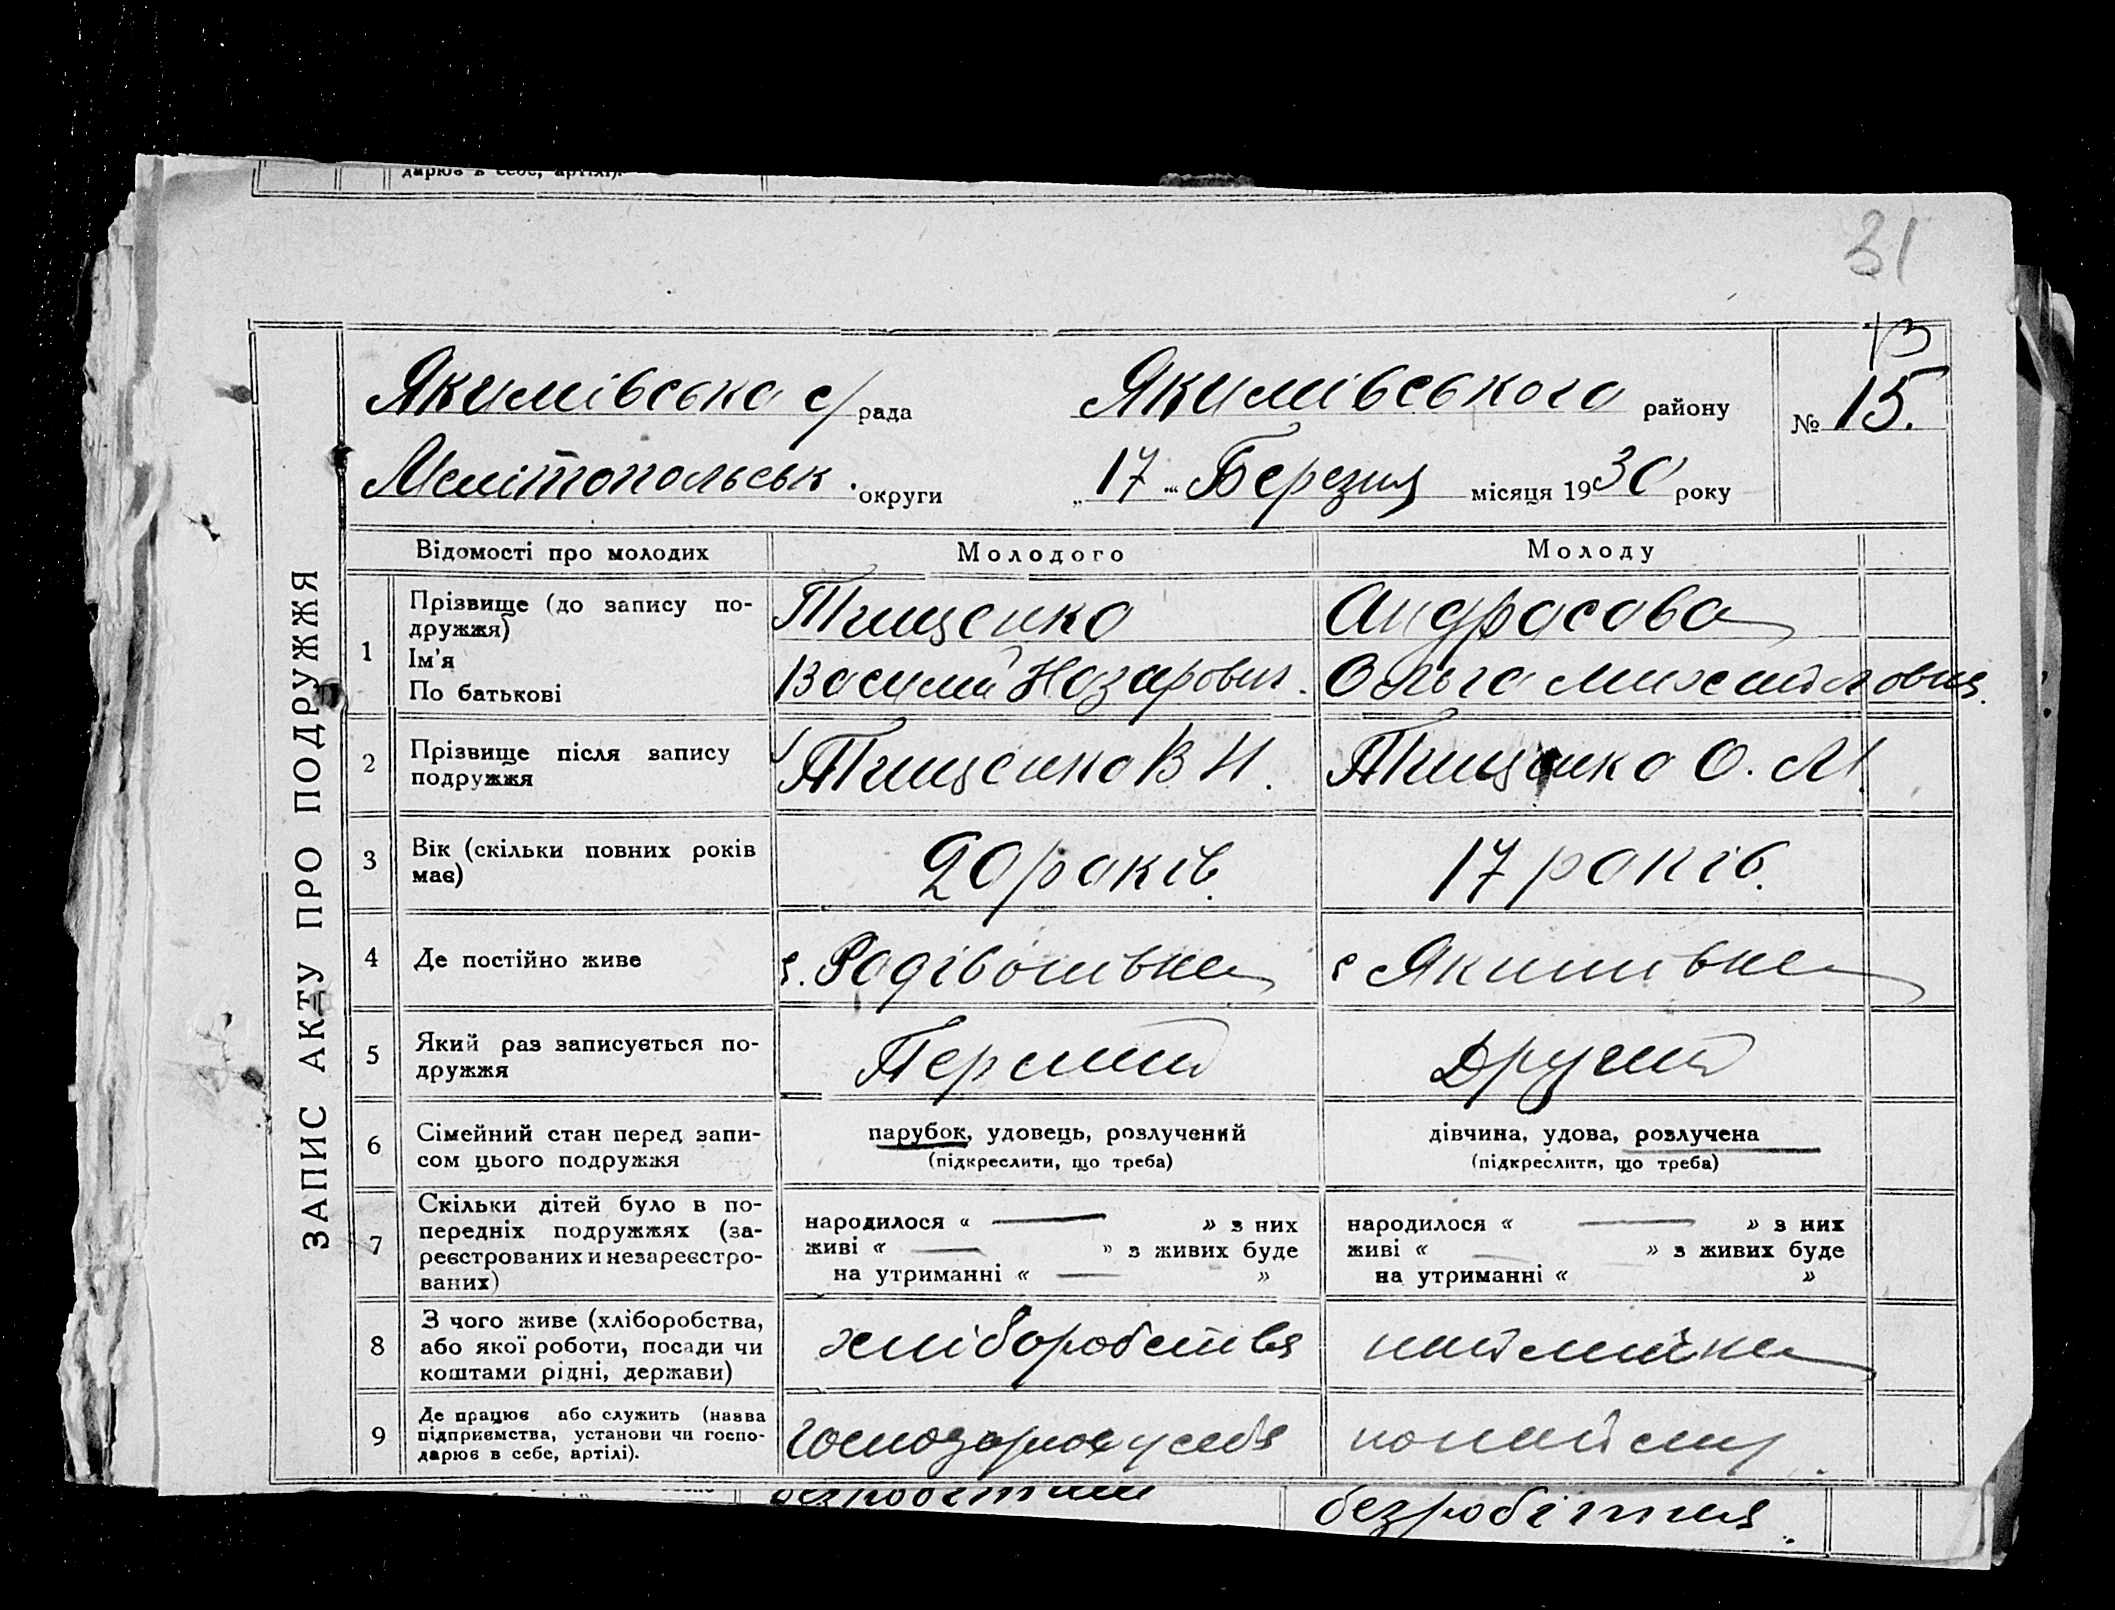 дарює в себе, артілі).
31
13
Якимівська с/рада Якимівського району № 15.
Мелітопольськ. округи „17" Березня місяця 1930 року
ЗАПИС АКТУ ПРО ПОДРУЖЖЯ
Відомості про молодих Молодого Молоду
1 Прізвище (до запису по-
дружжя)
Ім'я
По батькові
Тищенко
Василий Назарович.
Андросова
Ольга Михайловна.
2 Прізвище після запису
подружжя
Тищенко В Н.
Тищенко О. М.
3 Вік (скільки повних років
має)
20 років.
17 років.
4 Де постійно живе
с. Радівонівка
с Якимівка
5 Який раз записується по-
дружжя
Перший
Другий
6 Сімейний стан перед запи-
сом цього подружжя
парубок, удовець, розлучений
(підкреслити, що треба)
дівчина, удова, розлучена
(підкреслити, що треба)
7 Скільки дітей було в по-
передніх подружжях (за-
реєстрованих и незареєстро-
ваних)
народилося « — » з них
живі « — » з живих буде
на утриманні « — »
народилося « — » з них
живі « — » з живих буде
на утриманні « »
8 З чого живе (хліборобства,
або якої роботи, посади чи
коштами рідні, держави)
хліборобства
наймичка
9 Де працює або служить (назва
підприємства, установи чи госпо-
дарює в себе, артілі).
господарює у себя
по найму.
безробітний
безробітня.